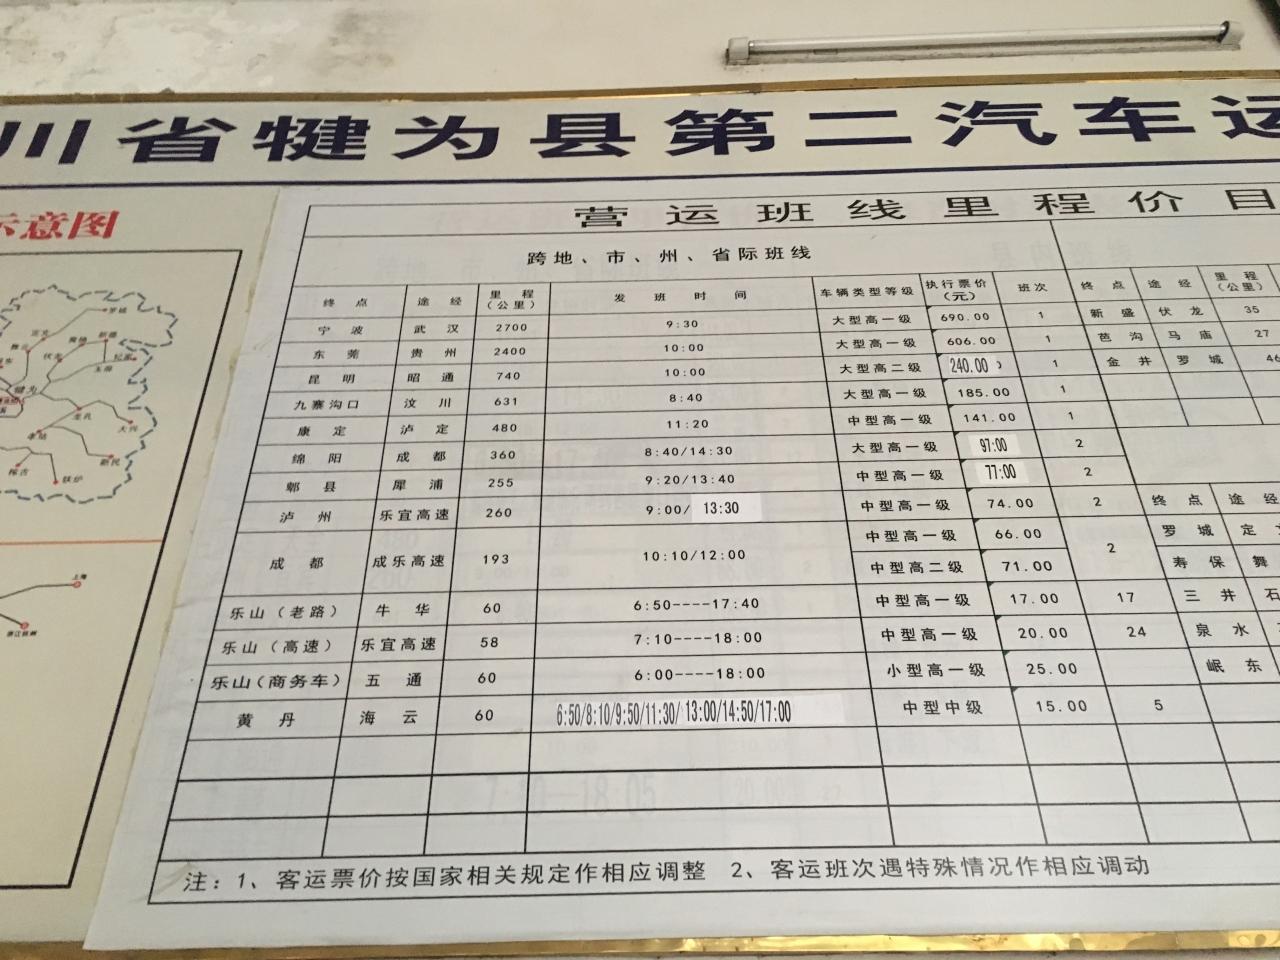 川省犍为县第二汽车运
示意图
营运班线里程价目
跨地、市、州、省际班线
终点 途经 里程(公里) 发班时间 车辆类型等级 执行票价(元) 班次 终点 途经 里程(公里)
宁波 武汉 2700 9:30 大型高一级 690.00 1 新盛 伏龙 35
东莞 贵州 2400 10:00 大型高一级 606.00 1 芭沟 马庙 27
昆明 昭通 740 10:00 大型高二级 240.00 1 金井 罗城 46
九寨沟口 汶川 631 8:40 大型高一级 185.00 1
康定 泸定 480 11:20 中型高一级 141.00 1
绵阳 成都 360 8:40/14:30 大型高一级 97:00 2
郫县 犀浦 255 9:20/13:40 中型高一级 77:00 2
泸州 乐宜高速 260 9:00/ 13:30 中型高一级 74.00 2 终点 途经
成都 成乐高速 193 10:10/12:00 中型高一级 66.00 2 罗城 定
中型高二级 71.00 寿保 舞
乐山(老路) 牛华 60 6:50----17:40 中型高一级 17.00 17 三井 石
乐山(高速) 乐宜高速 58 7:10----18:00 中型高一级 20.00 24 泉水
乐山(商务车) 五通 60 6:00----18:00 小型高一级 25.00 岷东
黄丹 海云 60 6:50/8:10/9:50/11:30/13:00/14:50/17:00 中型中级 15.00 5
注:1、客运票价按国家相关规定作相应调整 2、客运班次遇特殊情况作相应调动
犍为
大兴
新民
铁炉
上海